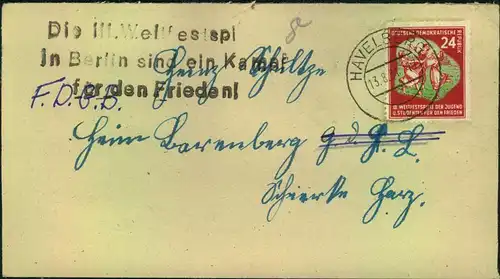 Die III. Weltfestspi
in Berlin sind ein Kampf
für den Frieden!
HAVELB
13.8.
DEUTSCHE DEMOKRATISCHE
REPUBLIK
24
III. WELTFESTSPIELE DER JUGEND
U. STUDENTEN FÜR DEN FRIEDEN
Heinz Schultze
F.D.G.B.
Heim Barenberg
Schierke Harz.